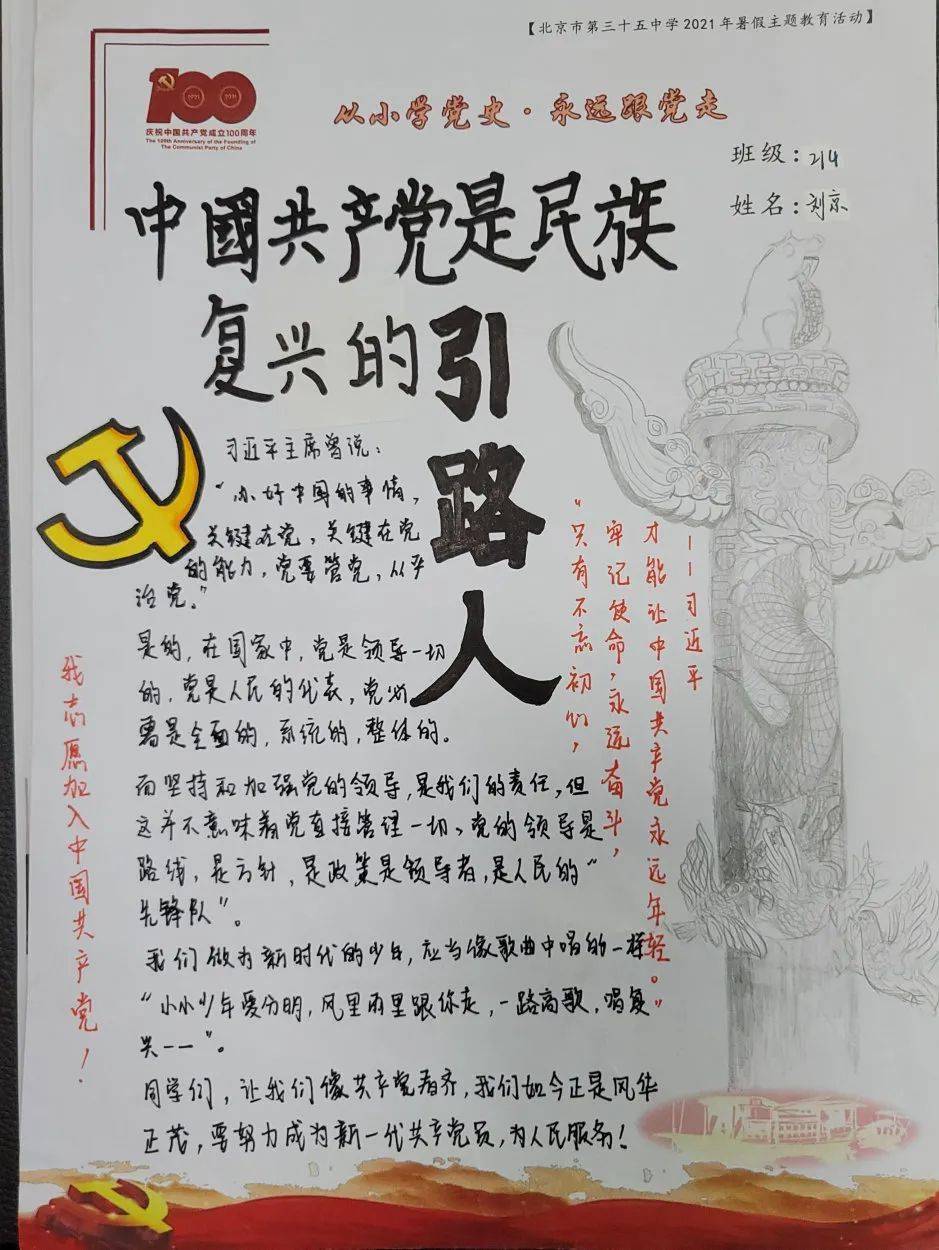 【北京市第三十五中学2021年暑假主题教育活动】
100
2021
庆祝中国共产党成立100周年
The 100th Anniversary of the Founding of
The Communist Party of China
从小学党史·永远跟党走
班级:214
姓名:刘京
中國共产党是民族
复兴的引路人
习近平主席曾说:
“办好中国的事情,
关键在党,关键在党
的能力,党要管党,从严
治党。”
是的,在国家中,党是领导一切
的,党是人民的代表,党必
需是全面的,系统的,整体的。
而坚持和加强党的领导,是我们的责任,但
这并不意味着党直接管理一切,党的领导是
路线,是方针,是政策是领导者,是人民的“
先锋队”。
我们做为新时代的少年,应当像歌曲中唱的一样
“小小少年爱分明,风里雨里跟你走,一路高歌,唱复
兴——”。
同学们,让我们像共产党看齐,我们如今正是风华
正茂,要努力成为新一代共产党员,为人民服务!
“只有不忘初心,
牢记使命,永远奋斗,
才能让中国共产党永远年轻。”
——习近平
我志愿加入中国共产党!